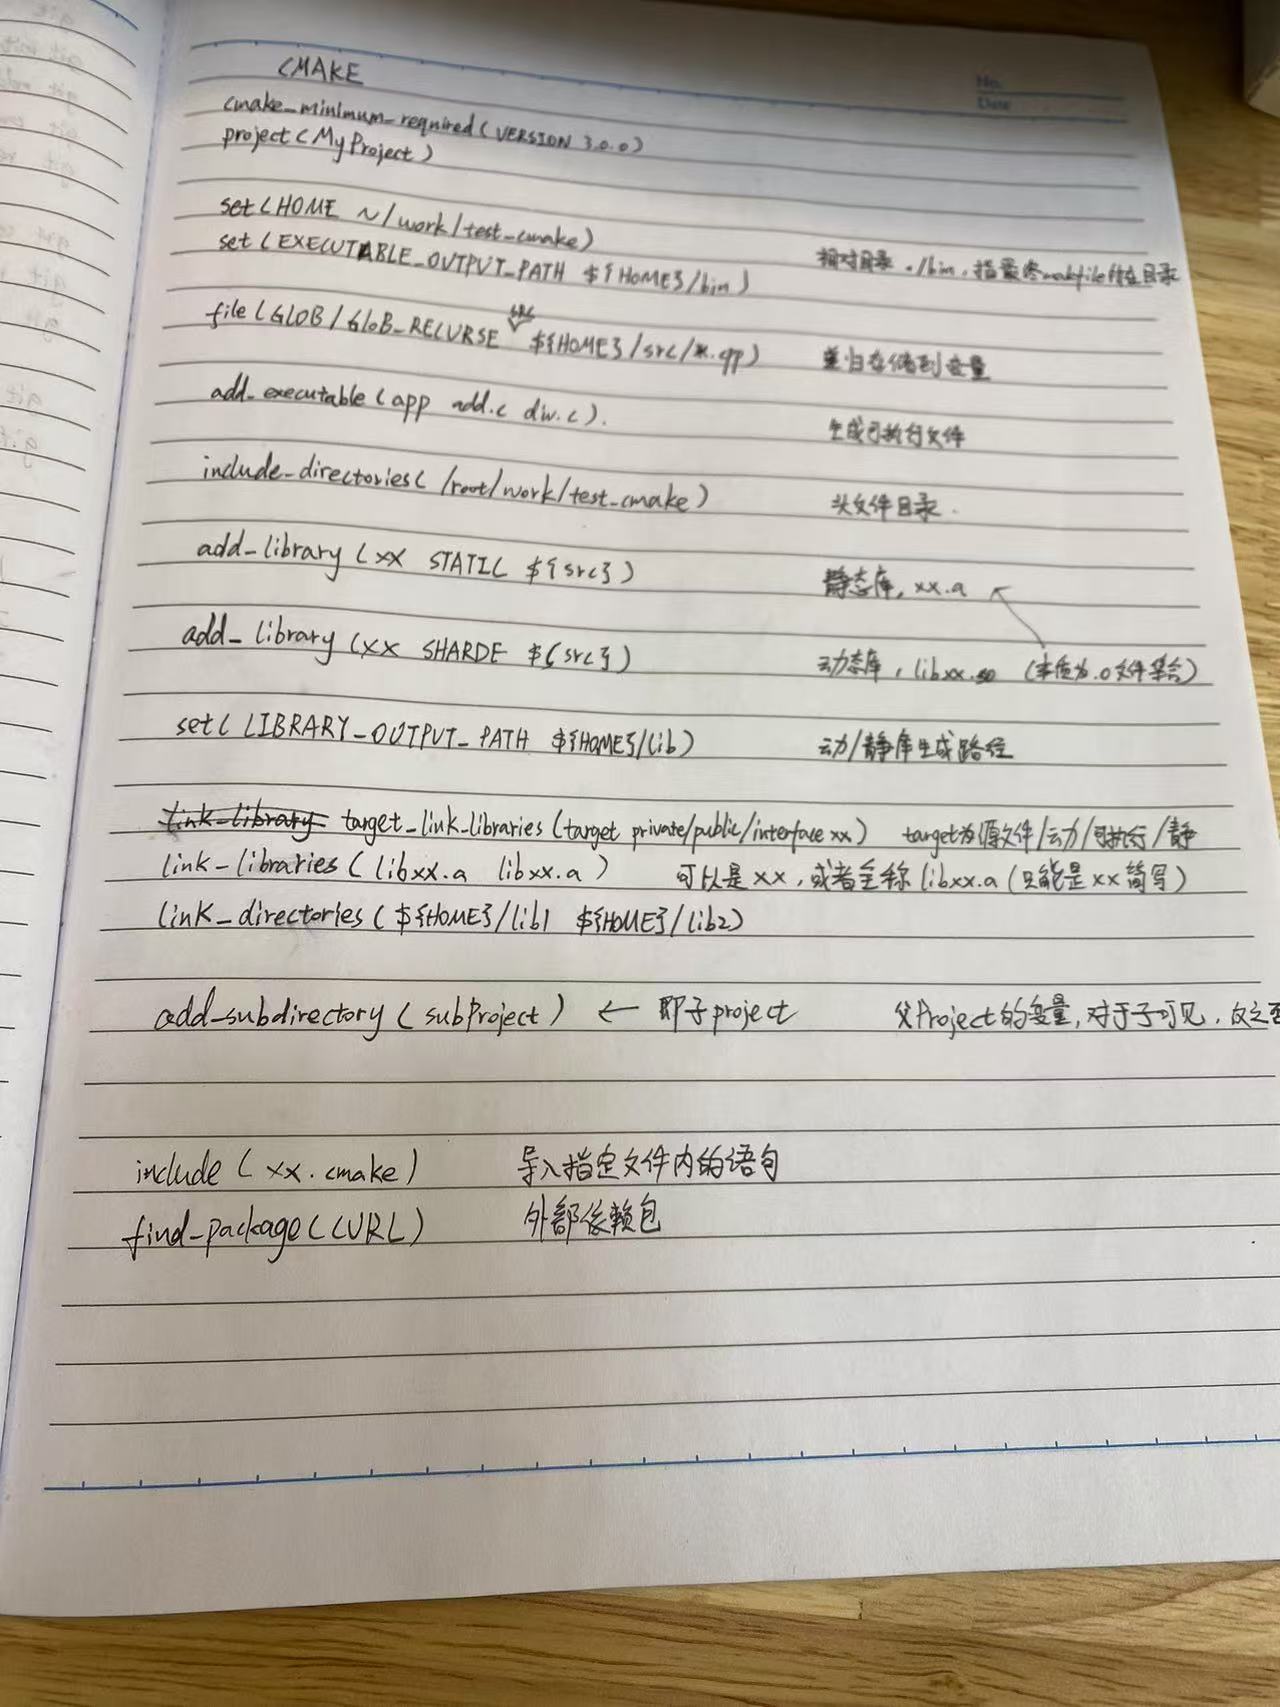 No.
Date
CMAKE
cmake_minimum_required(VERSION 3.0.0)
project(MyProject)
set(HOME ~/work/test_cmake)
set(EXECUTABLE_OUTPUT_PATH ${HOME}/bin) 相对目录 ./bin,指最终makefile所在目录
src
file(GLOB/GLOB_RECURSE ${HOME}/src/*.cpp) 递归存储到变量
add_executable(app add.c div.c). 生成可执行文件
include_directories(/root/work/test_cmake) 头文件目录.
add_library(xx STATIC ${src}) 静态库, xx.a
add_library(xx SHARDE ${src}) 动态库, libxx.so (本质为.o文件集合)
set(LIBRARY_OUTPUT_PATH ${HOME}/lib) 动/静库生成路径
link_library target_link_libraries(target private/public/interface xx) target为源文件/动/可执行/静
link_libraries(libxx.a libxx.a) 可以是xx,或者全称libxx.a(只能是xx简写)
link_directories(${HOME}/lib1 ${HOME}/lib2)
add_subdirectory(subProject) ← 即子project 父Project的变量,对于子可见,反之否
include(xx.cmake) 导入指定文件内的语句
find_package(CURL) 外部依赖包